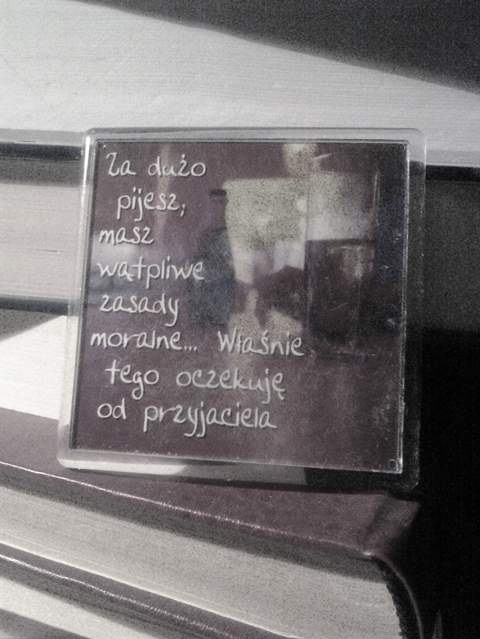 Za dużo
pijesz,
masz
wątpliwe
zasady
moralne... Właśnie
tego oczekuję
od przyjaciela